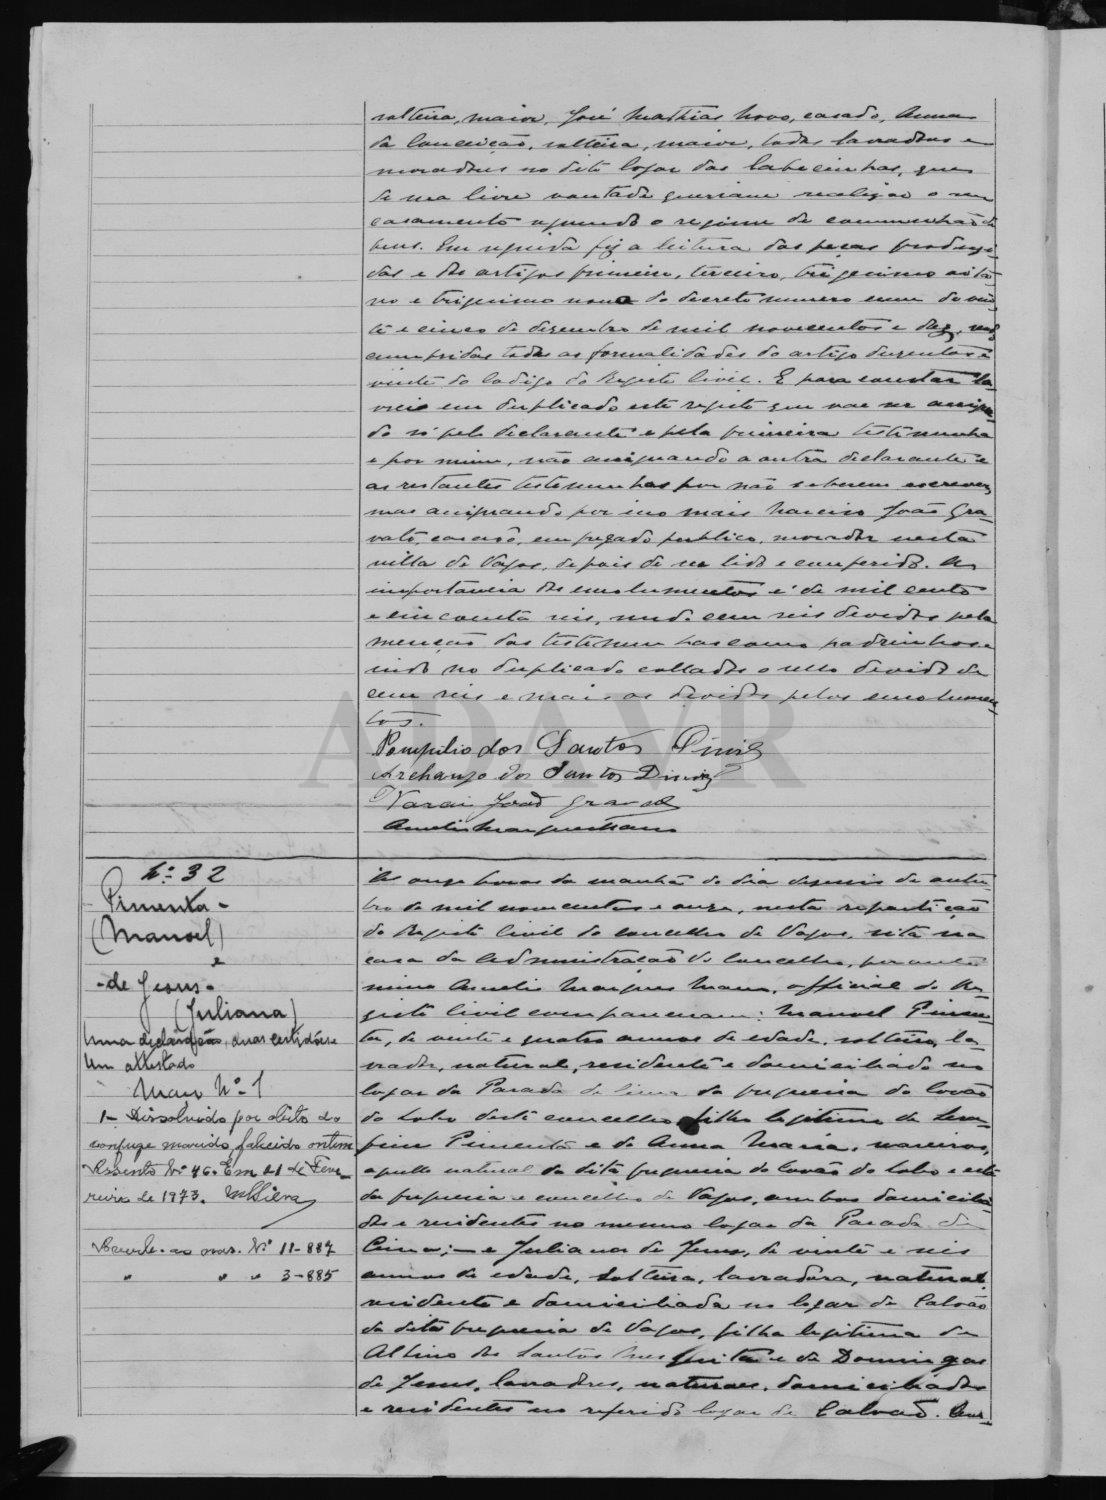 solteira, maior, José Mathias Novo, casado, Anna
da Conceição, solteira, maior, todos lavradores e
moradores no dito logar das Labecinhas, que
de sua livre vontade queriam realizar o seu
casamento segundo o regime de communhão de
bens. Em seguida fiz a leitura das peças produzi-
das e dos artigos primeiro, terceiro, trigesimo oita-
vo e trigesimo nono do decreto numero um de vin-
te e cinco de dezembro de mil novecentos e dez, sendo
cumpridas todas as formalidades do artigo duzentos e
vinte do Codigo do Registo Civil. E para constar la-
vrei em duplicado este registo que vae ser assigna-
do só pelo declarante e pela primeira testemunha
e por mim, não assignando a outra declarante e
as restantes testemunhas por não saberem escrever,
mas assignando por isso mais Narciso João Gra-
vato, casado, empregado publico, morador nesta
villa de Vagos, depois de ser lido e conferido. A
importancia dos emolumentos é de mil cento
e cincoenta reis, sendo cem reis devidos pela
menção das testemunhas como padrinhos e
sendo no duplicado collados o sello devido de
cem reis e mais os devidos pelos emolumen-
tos.
Pompilio dos Santos Diniz
Archanjo dos Santos Diniz
Narciso João Gravato
Amelio Marques Mano
Nº 32
Pimenta -
(Manoel)
e
- de Jesus -
(Juliana)
Uma declaração, duas certidões e
um attestado
Maço Nº 1
1- Dissolvido por óbito do
conjuge marido, falecido ontem
Assento Nº 46. Em 21 de Feve-
reiro de 1973. MSilva
Averb. ao nas. Nº 11-887
" " " 3-885
Ás onze horas da manhã do dia dezeseis de outu-
bro de mil novecentos e onze, nesta repartição
do Registo Civil do concelho de Vagos, sita na
casa da Administração do Concelho, perante
mim Amelio Marques Mano, official do Re-
gisto Civil compareceram: Manoel Pimen-
ta, de vinte e quatro annos de edade, solteiro, la-
vrador, natural, residente e domiciliado no
logar da Parada de Cima da freguezia de Covão
do Lobo deste concelho, filho legitimo de Sera-
fim Pimenta e de Anna Maria,
aquelle natural da dita freguezia de Covão do Lobo e esta
da freguezia e concelho de Vagos, ambos domicilia-
dos e residentes no mesmo logar da Parada de
Cima; — e Juliana de Jesus, de vinte e seis
annos de edade, solteira, lavradora, natural,
residente e domiciliada no logar de Calvão
da dita freguezia de Vagos, filha legitima de
Albino dos Santos Mesquita e de Domingas
de Jesus, lavradores, naturaes, domiciliados
e residentes no referido logar de Calvão.